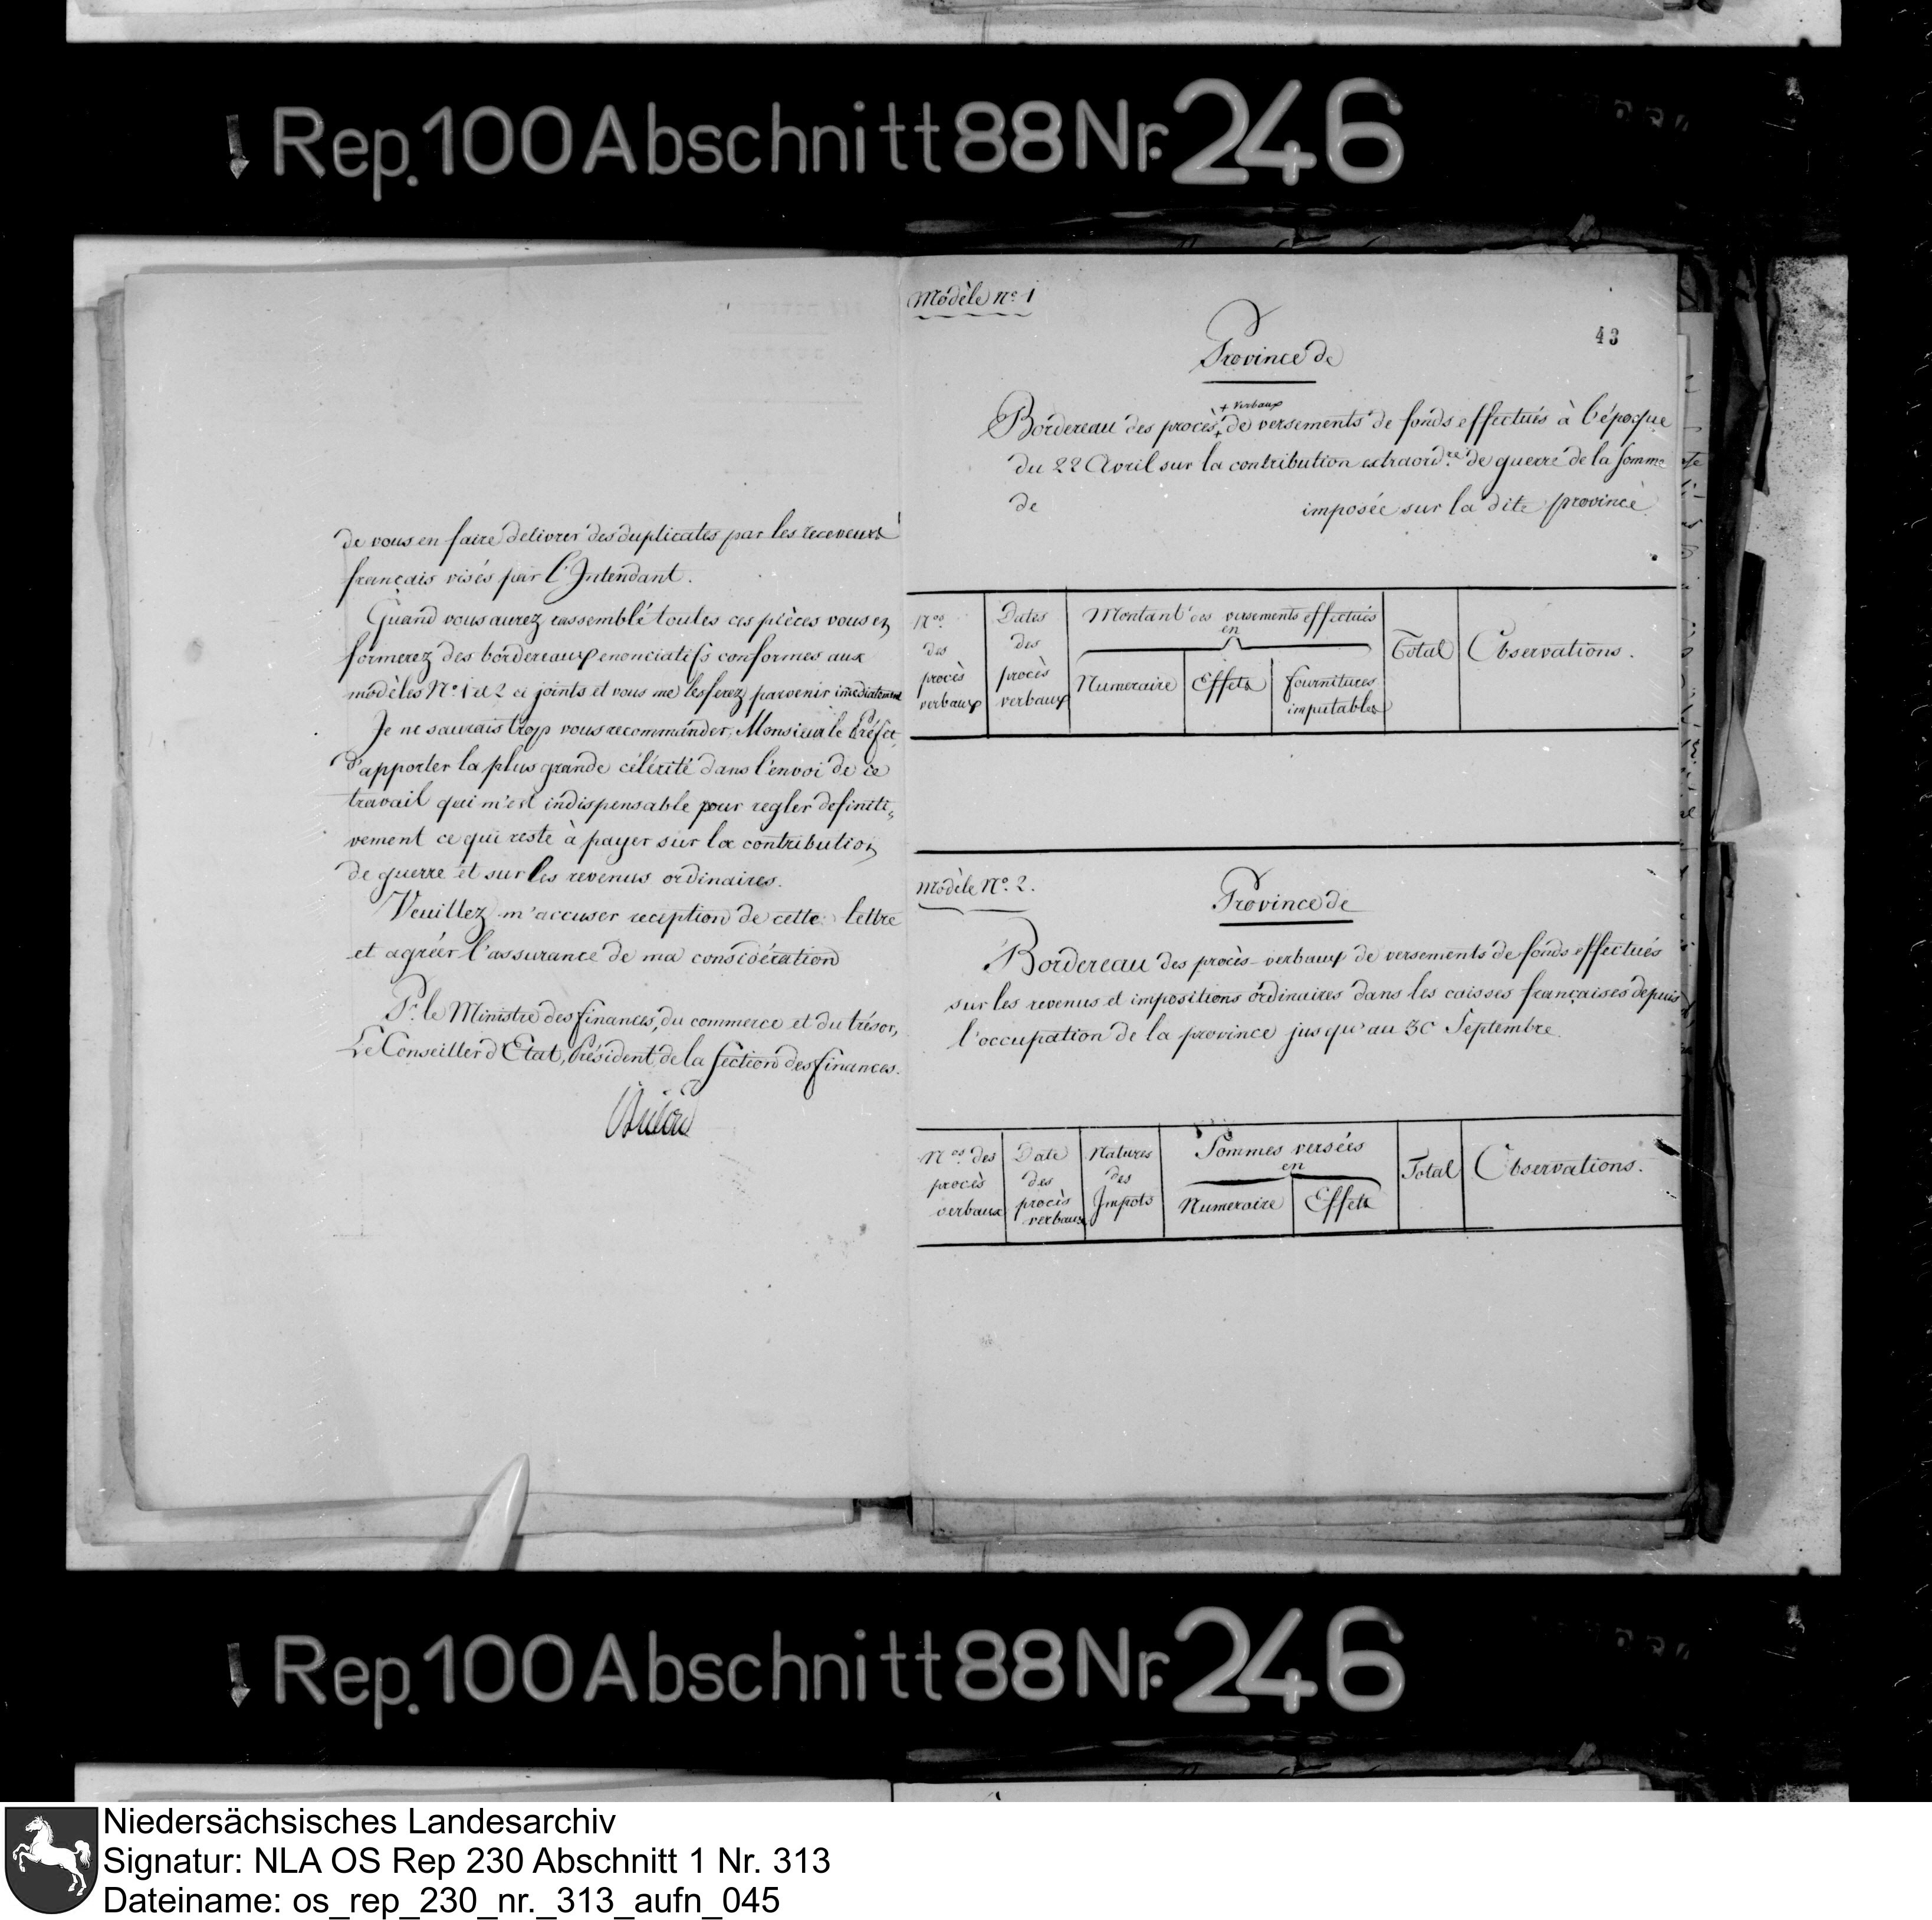 Rep. 100 Abschnitt 88 Nr. 246
de vous en faire delivrer des duplicates par les receveurs
français visés par l'Intendant.
Quand vous aurez rassemblé toutes ces pièces vous en
formerez des bordereaux enonciatifs conformes aux
modèles N.o 1 et 2 ci joints et vous me les ferez parvenir immediatement
Je ne saurais trop vous recommander, Monsieur le Préfet
d'apporter la plus grande célérité dans l'envoi de ce
travail qui m'est indispensable pour regler definiti-
vement ce qui reste à payer sur la contribution
de guerre et sur les revenus ordinaires.
Veuillez m'accuser reception de cette lettre
et agréer l'assurance de ma considération
P.r le Ministre des finances, du commerce et du trésor,
Le Conseiller d'Etat, Président de la Section des finances.
Modèle n.o 1
43
Province de
+ verbaux
Bordereau des procès + de versements de fonds effectués à l'époque
du 22 Avril sur la contribution extraord.re de guerre de la somme
de imposée sur la dite province
N.os des procès verbaux
Dates des procès verbaux
Montant des versements effectués en
Numeraire
Effets
fournitures imputables
Total
Observations.
Modèle N.o 2.
Province de
Bordereau des procès-verbaux de versements de fonds effectués
sur les revenus et impositions ordinaires dans les caisses françaises depuis
l'occupation de la province jusqu'au 30 Septembre.
N.os des procès verbaux
Date des procès verbaux
Natures des Impots
Sommes versées en
Numeraire
Effets
Total
Observations.
Rep. 100 Abschnitt 88 Nr. 246
Niedersächsisches Landesarchiv
Signatur: NLA OS Rep 230 Abschnitt 1 Nr. 313
Dateiname: os_rep_230_nr._313_aufn_045